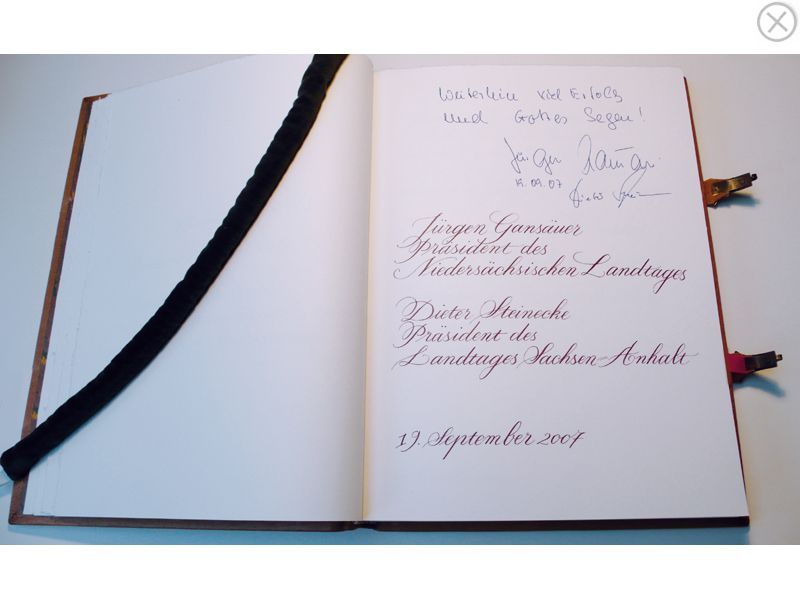 Weiterhin viel Erfolg
und Gottes Segen!
Jürgen Gansäuer
19.09.07
Dieter Steinecke
Jürgen Gansäuer
Präsident des
Niedersächsischen Landtages
Dieter Steinecke
Präsident des
Landtages Sachsen-Anhalt
19. September 2007